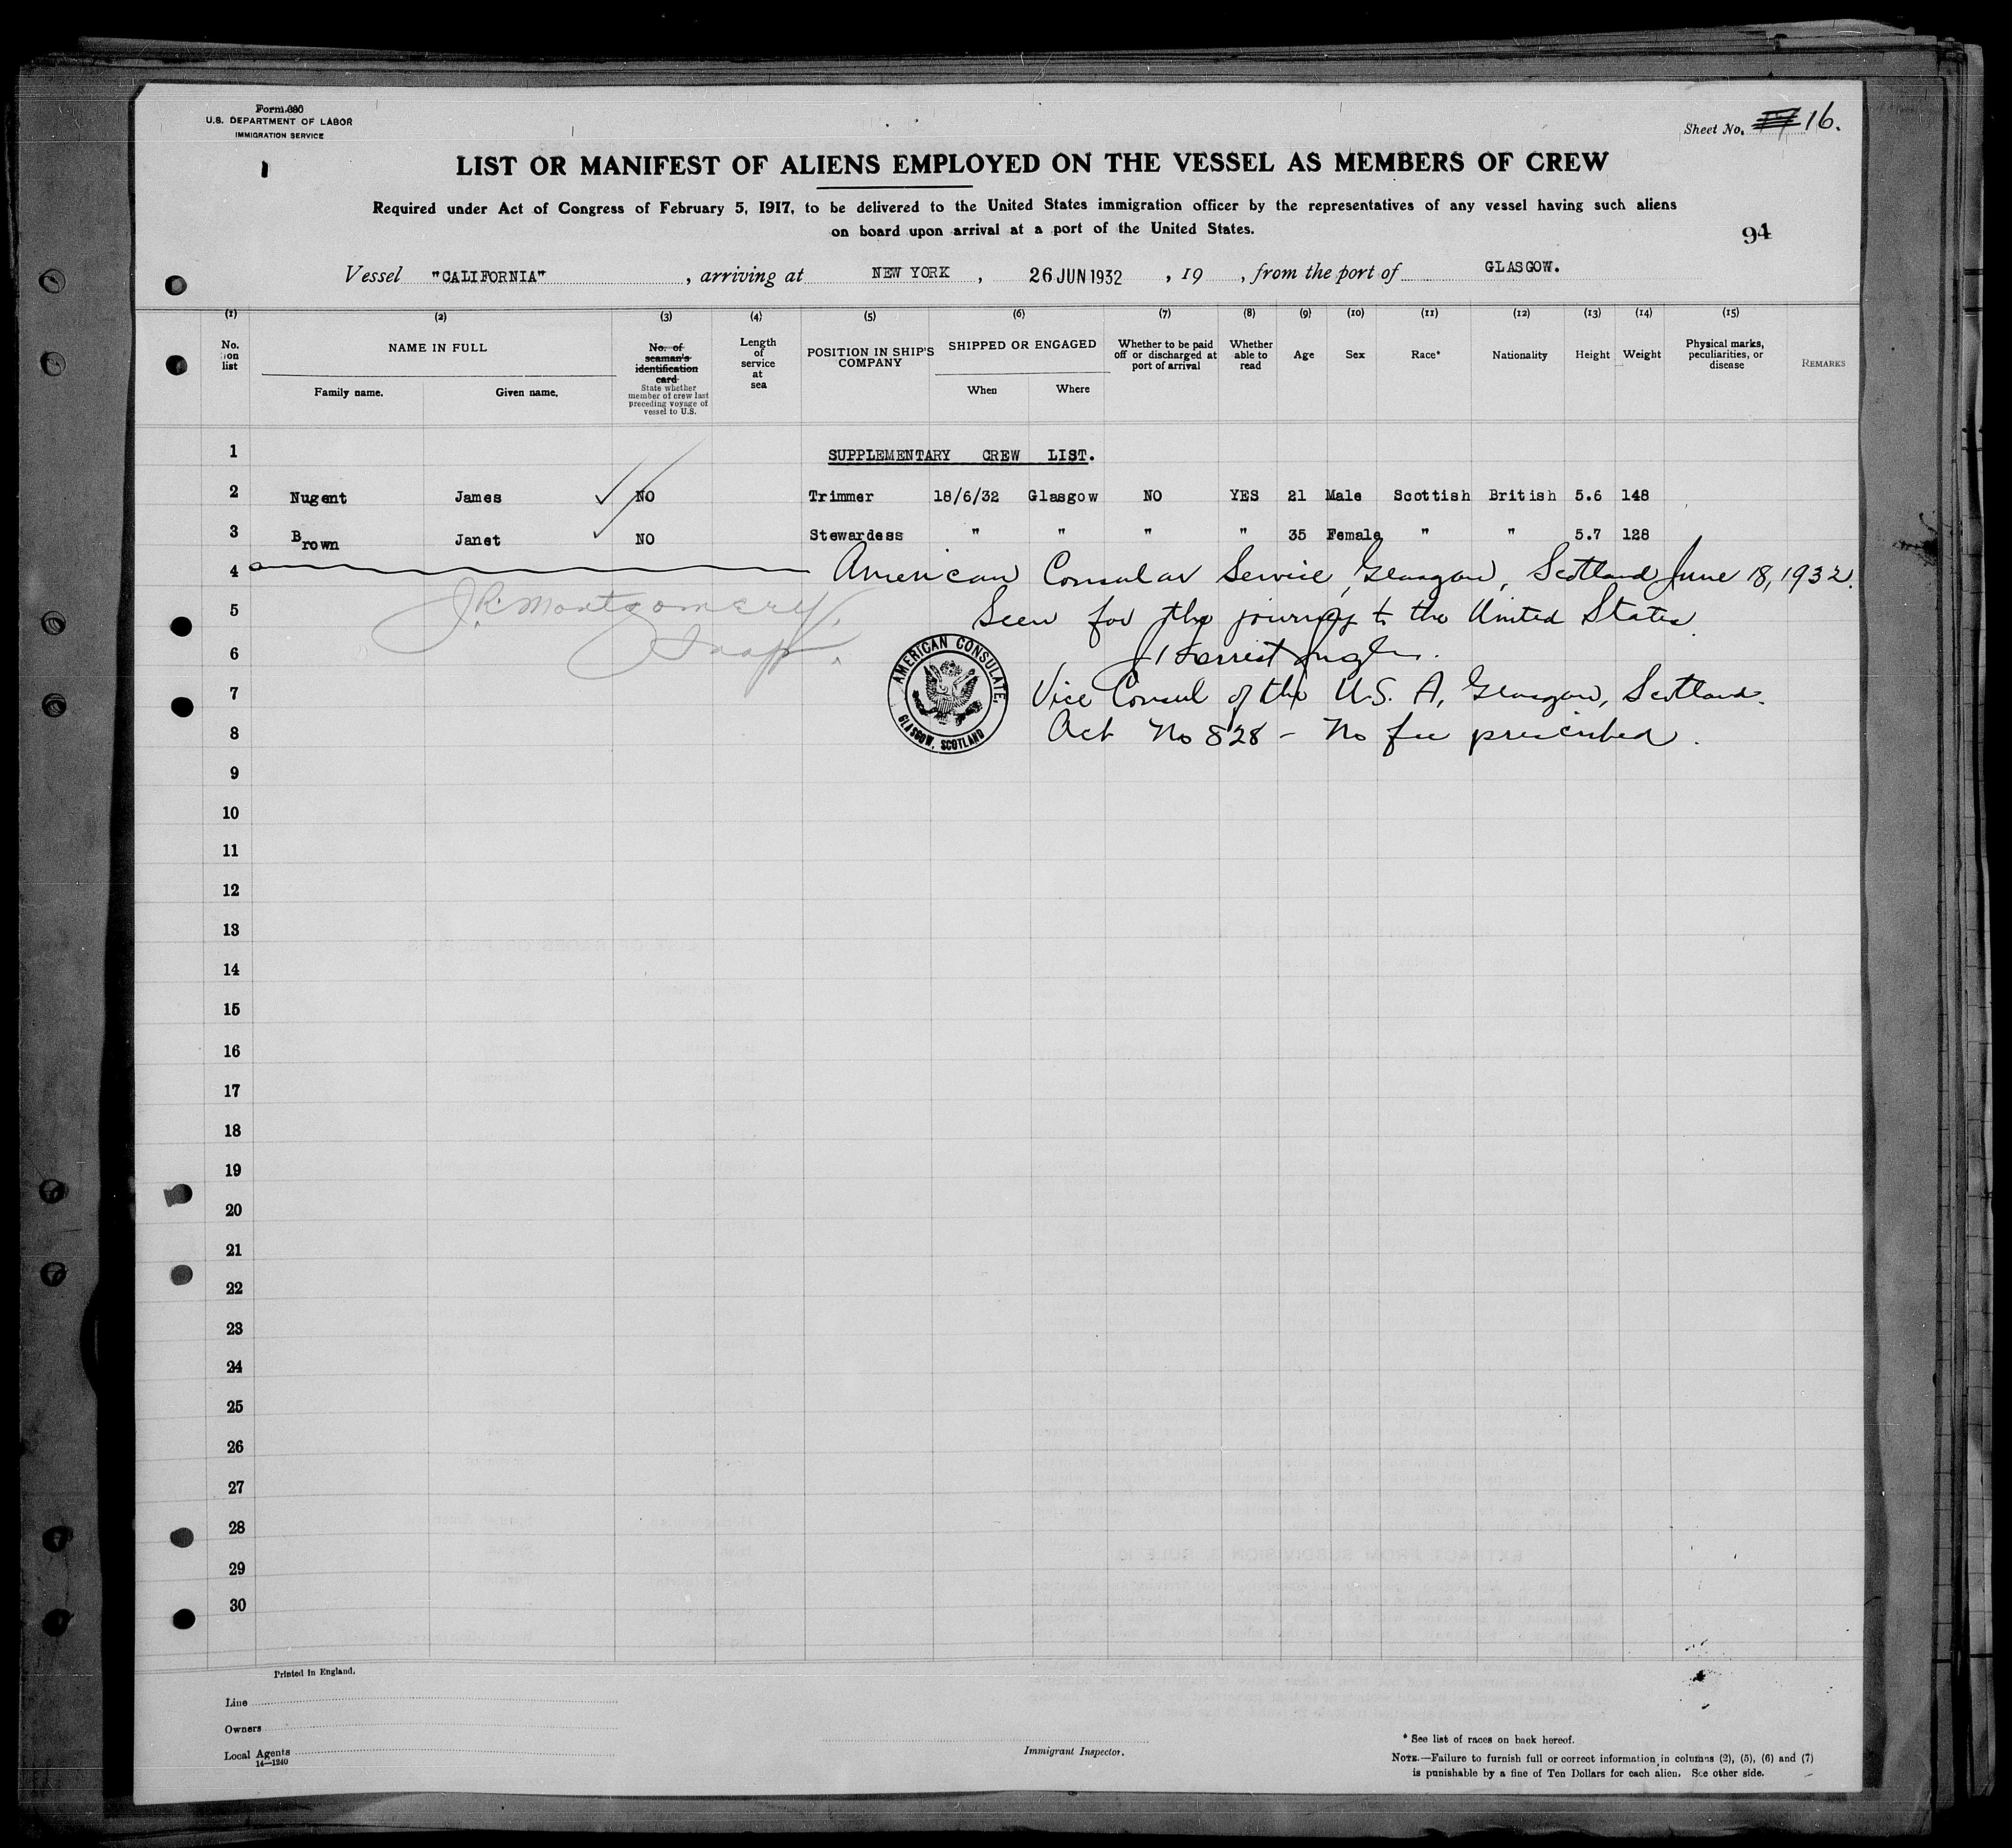 Form 680
U.S. DEPARTMENT OF LABOR
IMMIGRATION SERVICE
Sheet No. 16.
LIST OR MANIFEST OF ALIENS EMPLOYED ON THE VESSEL AS MEMBERS OF CREW
Required under Act of Congress of February 5, 1917, to be delivered to the United States immigration officer by the representatives of any vessel having such aliens
on board upon arrival at a port of the United States.
94
Vessel "CALIFORNIA", arriving at NEW YORK, 26 JUN 1932, 19 , from the port of GLASGOW.
(1) (2) (3) (4) (5) (6) (7) (8) (9) (10) (11) (12) (13) (14) (15)
No. on list
NAME IN FULL
Family name. Given name.
No. of seaman's identification card
State whether member of crew last preceding voyage of vessel to U.S.
Length of service at sea
POSITION IN SHIP'S COMPANY
SHIPPED OR ENGAGED
When Where
Whether to be paid off or discharged at port of arrival
Whether able to read
Age
Sex
Race*
Nationality
Height
Weight
Physical marks, peculiarities, or disease
REMARKS
1 SUPPLEMENTARY CREW LIST.
2 Nugent James NO Trimmer 18/6/32 Glasgow NO YES 21 Male Scottish British 5.6 148
3 Brown Janet NO Stewardess " " " " 35 Female " " 5.7 128
4 American Consular Service, Glasgow, Scotland June 18, 1932.
5 J.R. Montgomery. Seen for the journey to the United States
6
7 Vice Consul of the U.S. A, Glasgow, Scotland.
8 Act No 828 - No fee prescribed.
AMERICAN CONSULATE,
GLASGOW, SCOTLAND
9
10
11
12
13
14
15
16
17
18
19
20
21
22
23
24
25
26
27
28
29
30
Printed in England.
Line
Owners
Local Agents
14—1240
Immigrant Inspector.
* See list of races on back hereof.
NOTE.—Failure to furnish full or correct information in columns (2), (5), (6) and (7)
is punishable by a fine of Ten Dollars for each alien. See other side.